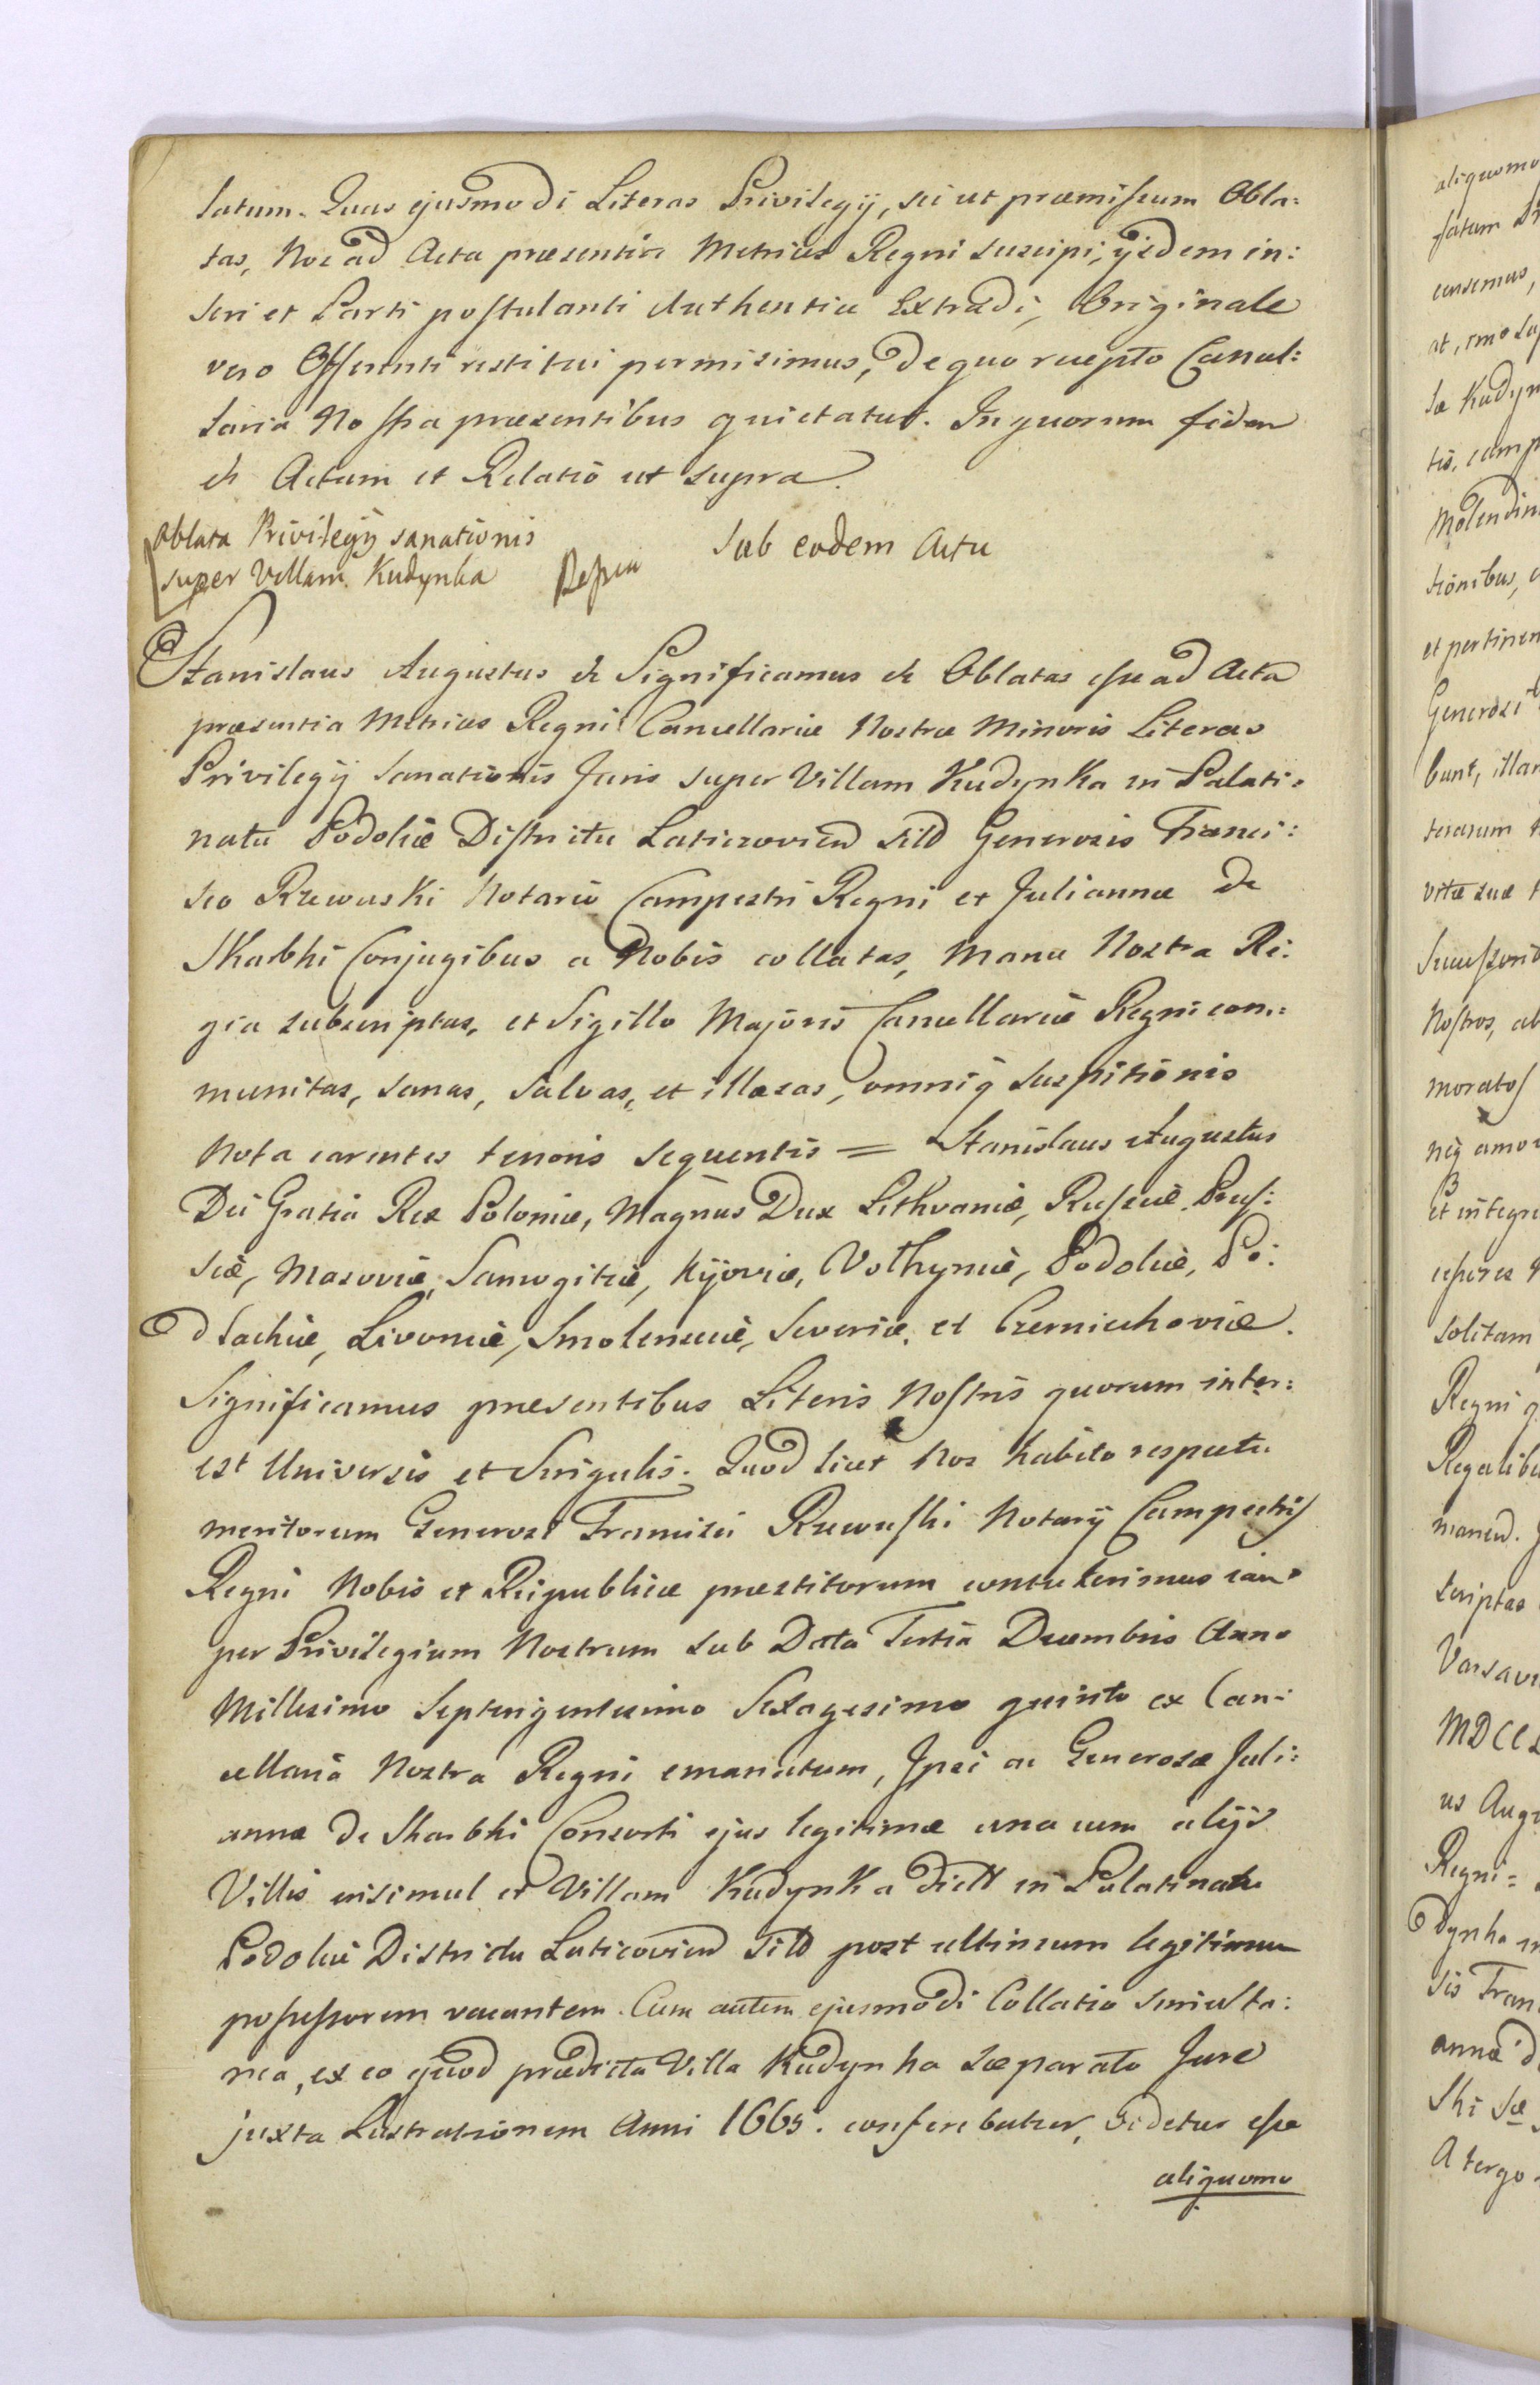 latum. Quas ejusmodi Literas Privilegij, sic ut præmissum Obla:
tas, Nos ad Acta præsentia Metrices Regni suscipi, ijsdem in:
seri et Parti postulanti Authentice Extradi, Originale
vero Offerenti restitui permisimus, de quo recepto Cancel:
laria Nostra præsentibus quietatur. In quorum fidem
etc Actum et Relatio ut supra.
Oblata Privilegij sanationis
super Villam Kudynka
Sub eodem Actu
Stanislaus Augustus etc Significamus etc Oblatas esse ad Acta
præsentia Metrices Regni Cancellariæ Nostræ Minoris Literas
Privilegij Sanationis Juris super Villam Kudynka in Palati:
natu Podoliæ Districtu Laticzovien sitâ Generosis Franci:
sco Rzewuski Notario Campestri Regni et Juliannæ de
Skarbki Conjugibus a Nobis collatas, Manu Nostra Re:
gia subscriptas, et Sigillo Majoris Cancellariæ Regni com:
munitas, sanas, salvas, et illæsas, omniq suspitionis
nota carentes tenoris sequentis = Stanislaus Augustus
Dei Gratia Rex Poloniæ, Magnus Dux Lithvaniæ, Russiæ, Prus:
siæ, Masoviæ, Samogitiæ, Kijoviæ, Volhyniæ, Podoliæ, Po:
dlachiæ, Livoniæ, Smolensciæ, Severiæ, et Czerniechoviæ.
Significamus præsentibus Literis Nostris quorum inter:
est Universis et Singulis. Quod licet Nos habito respectu
meritorum Generosi Francisci Rzewuski Notarij Campestris
Regni Nobis et Reipublicæ præstitorum contulerimus iam
per Privilegium Nostrum sub Data Tertia Decembris Anno
Millesimo Septingentesimo Sexagesimo quinto ex Can:
cellaria Nostra Regni emanatum, Ipsi ac Generosæ Juli:
annæ de Skarbki Consorti ejus legitimæ una cum alijs
Villis insimul et Villam Kudynka dictt in Palatinatu
Podoliæ Districtu Laticovien sitâ post ultimum legitimum
possessorem vacantem. Cum autem ejusmodi Collatio simulta:
nea, ex eo quod prædicta Villa Kudynka sæparato Jure
juxta Lustrationem Anni 1665. conferebatur, videtur esse
aliquomo